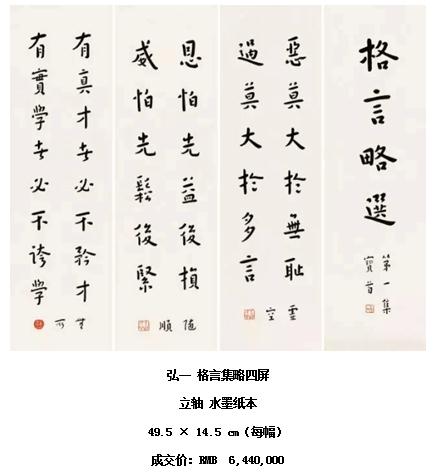 格言略選
第一集
惡莫大於無恥
過莫大於多言
恩怕先益後損
威怕先鬆後緊
随
順
有真才者必不矜才
有實学者必不誇學
弘一 格言集略四屏
立轴 水墨纸本
49.5 × 14.5 cm（每幅）
成交价：RMB 6,440,000